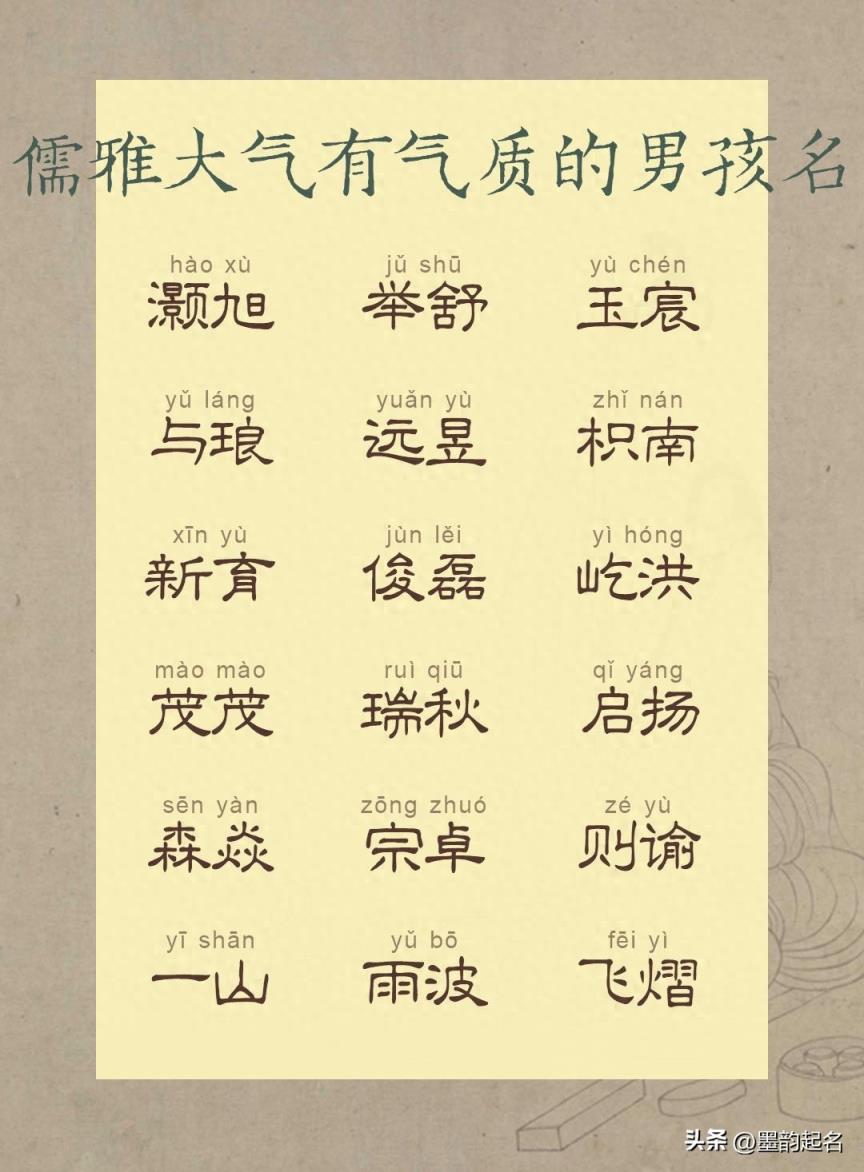 儒雅大气有气质的男孩名
hào xù jǔ shū yù chén
灏旭 举舒 玉宸
yǔ láng yuǎn yù zhǐ nán
与琅 远昱 枳南
xīn yù jùn lěi yì hóng
新育 俊磊 屹洪
mào mào ruì qiū qǐ yáng
茂茂 瑞秋 启扬
sēn yàn zōng zhuó zé yù
森焱 宗卓 则谕
yī shān yǔ bō fēi yì
一山 雨波 飞熠
头条 @墨韵起名